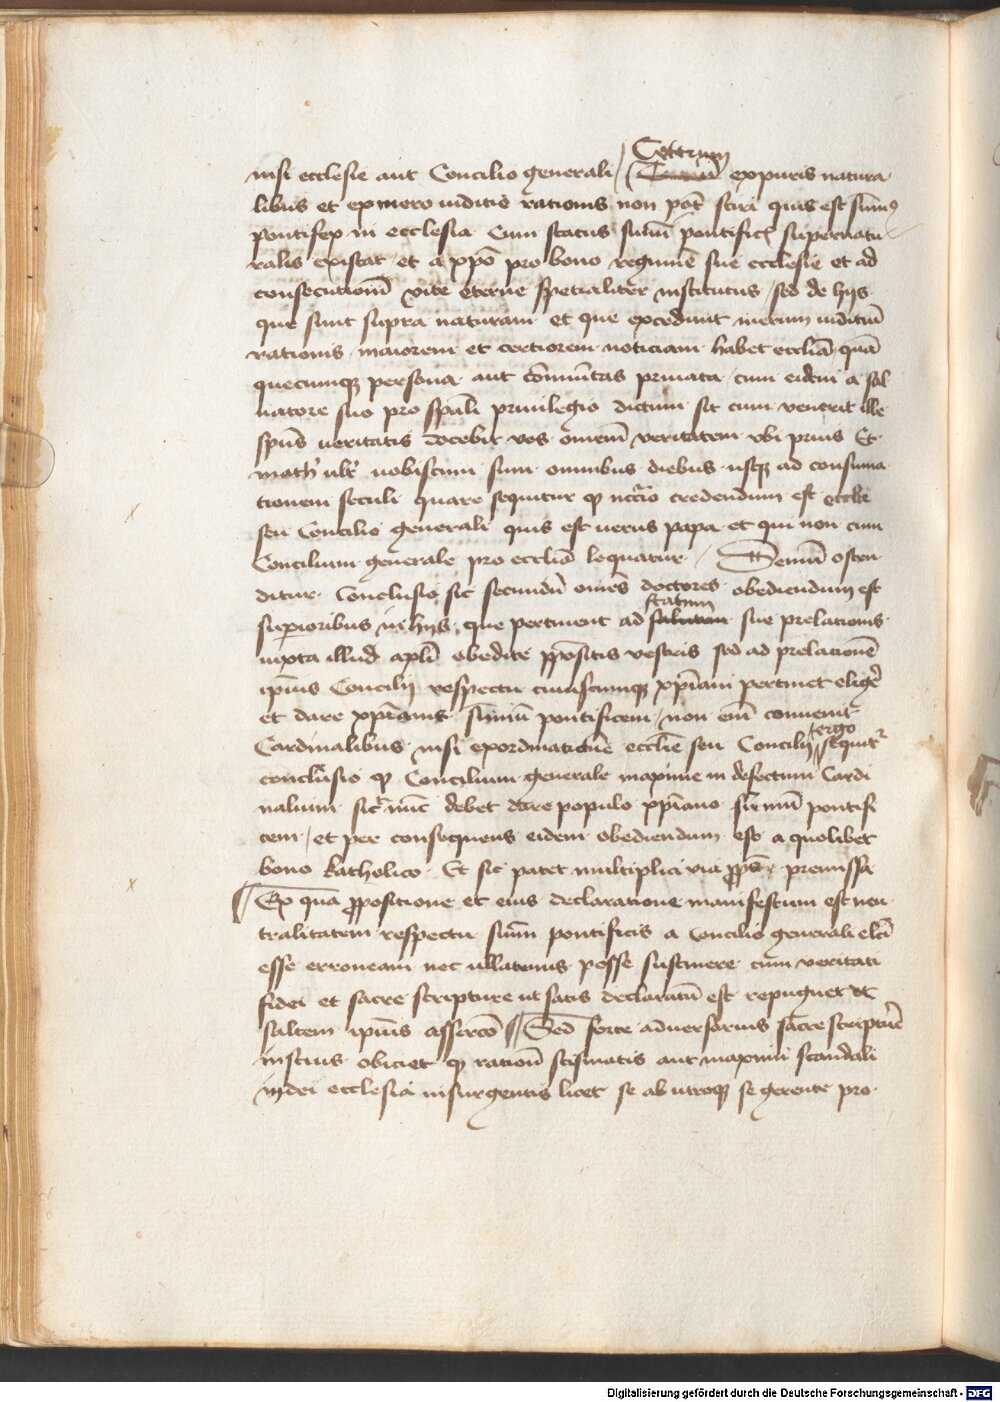 nisi ecclesie aut Concilio generali / Ceterum ex puris natura
libus et ex mero iuditio rationis non pot sciri quis est sum9
pontifex in ecclesia Cum status sumi pontific supernatu
ralis existat et a xpo pro bono regimine sue ecclesie et ad
consecutionem vite eterne spetialiter institutus / sed de hijs
que sunt supra naturam et que excedunt merum iuditiū
rationis maiorem et certiorem noticiam habet ecclīa quā
quecumque persona aut cōmūtas priuata / cum eidem a sal
uatore suo pro spāli priuilegio dictum sit cum venerit ille
spūs ueritatis docebit vos omem veritatem vbi prius Et
math' ult' uobiscum sum omnibus diebus usque ad consuma
tionem seculi quare sequitur q nccrio credendum est eccle
seu Concilio generali quis est uerus papa et qui non cum
Concilium generale pro ecclīa loquatur / Demū osten
ditur Conclusio sic secundū omēs doctores obediendum est
superioribus in hijs que pertinent ad statum sue prelationis
iuxta illud apli obedite ppositis vestris sed ad prelationē
ipius Concilij respectu cuiuscumque xpiani pertinet eligere
et dare xpianis sumū pontificem / non em conuenit
Cardinalibus nisi ex ordinatione ecclie seu Concilij / ergo sequit'
conclusio q Concilium generale maxime in defectum Cardi
nalium sic' nūc debet dare populo xpiano summū pontifi
cem / et per consequens eidem obediendum est a quolibet
bono katholico Et sic patet multiplici via pps premissa
Ex qua ppositione et eius declaratione manifestum est neu
tralitatem respectu sumi pontificis a concilio generali elci
esse erroneam nec ullatenus posse sustinere cum veritati
fidei et sacre scripture ut satis declaratū est repugnet et
saltem ipius assercō Sed forte aduersarius sacre scripture
inscius obiciet q ratione scismatis aut maximi scandali
in dei ecclesia insurgentis licet se ab utroque se gerente pro
Digitalisierung gefördert durch die Deutsche Forschungsgemeinschaft - DFG